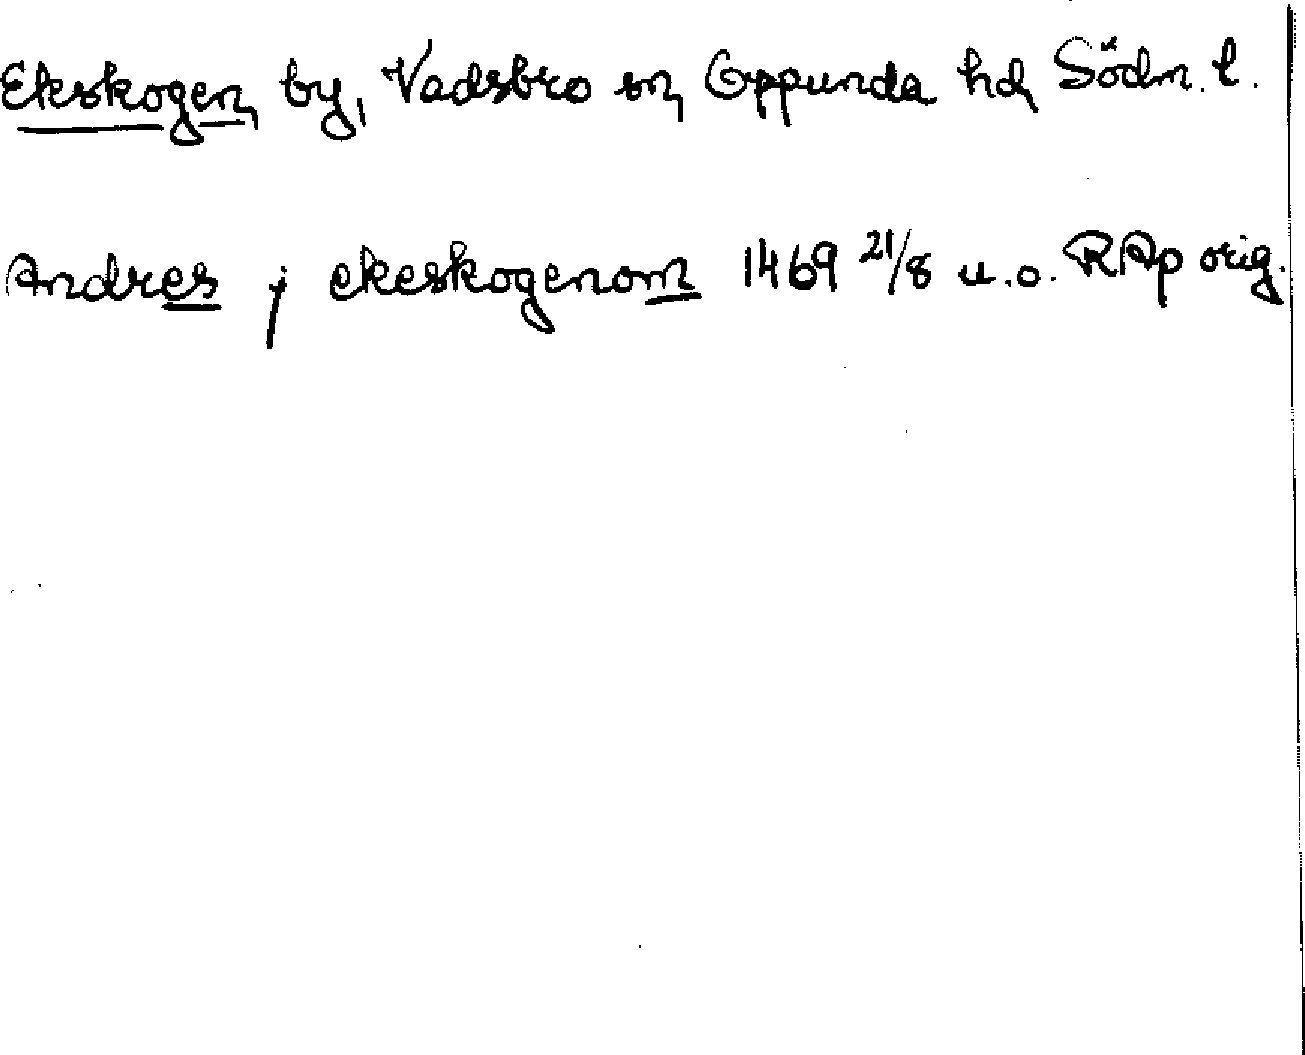 Ekskogen, by, Vadsbro sn, Oppunda hd, Södm. l.
Andres j ekeskogenom 1469 21/8 u.o. RAp orig.